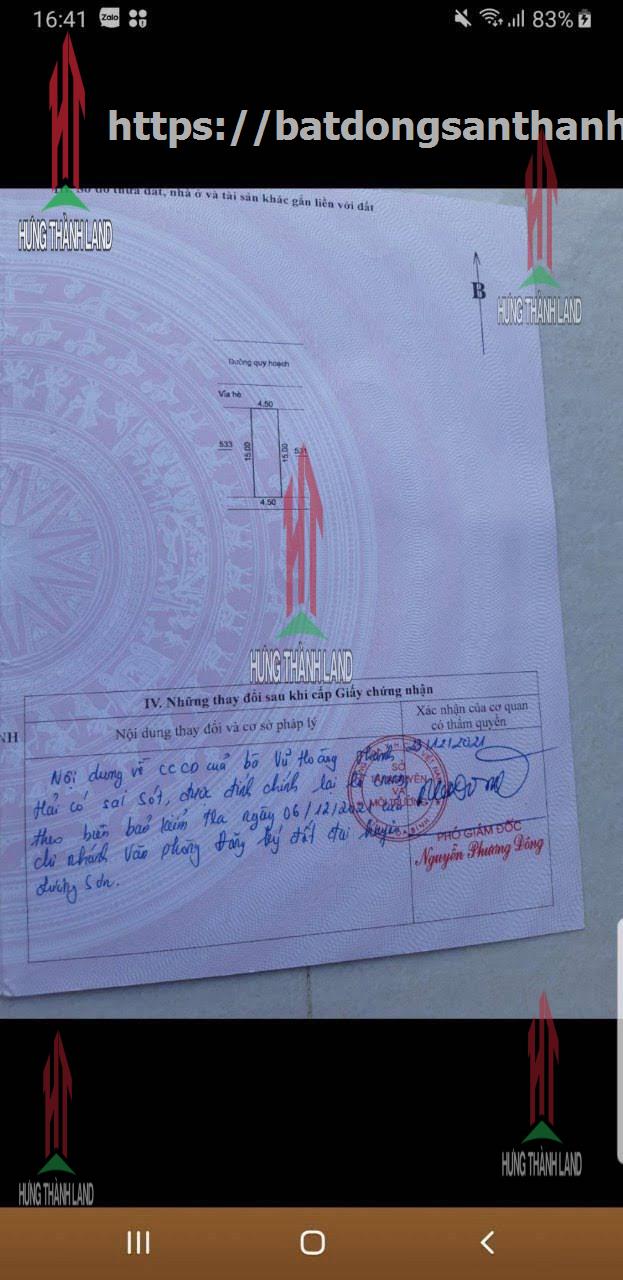 16:41
Zalo
83%
https://batdongsanthanh
HƯNG THÀNH LAND
HƯNG THÀNH LAND
III. Sơ đồ thửa đất, nhà ở và tài sản khác gắn liền với đất
B
Đường quy hoạch
Vỉa hè
4.50
533
15.00
15.00
531
4.50
HƯNG THÀNH LAND
IV. Những thay đổi sau khi cấp Giấy chứng nhận
NH
Nội dung thay đổi và cơ sở pháp lý
Xác nhận của cơ quan
có thẩm quyền
Nội dung về CCCD của bà Vũ Hoàng Thanh
Hải có sai sót, được đính chính lại
theo biên bản kiểm tra ngày 06/12/2021 của
chi nhánh Văn phòng Đăng ký đất đai huyện
Lương Sơn.
23/12/2021
SỞ
TÀI NGUYÊN
VÀ
MÔI TRƯỜNG
PHÓ GIÁM ĐỐC
Nguyễn Phương Đông
HƯNG THÀNH LAND
HƯNG THÀNH LAND